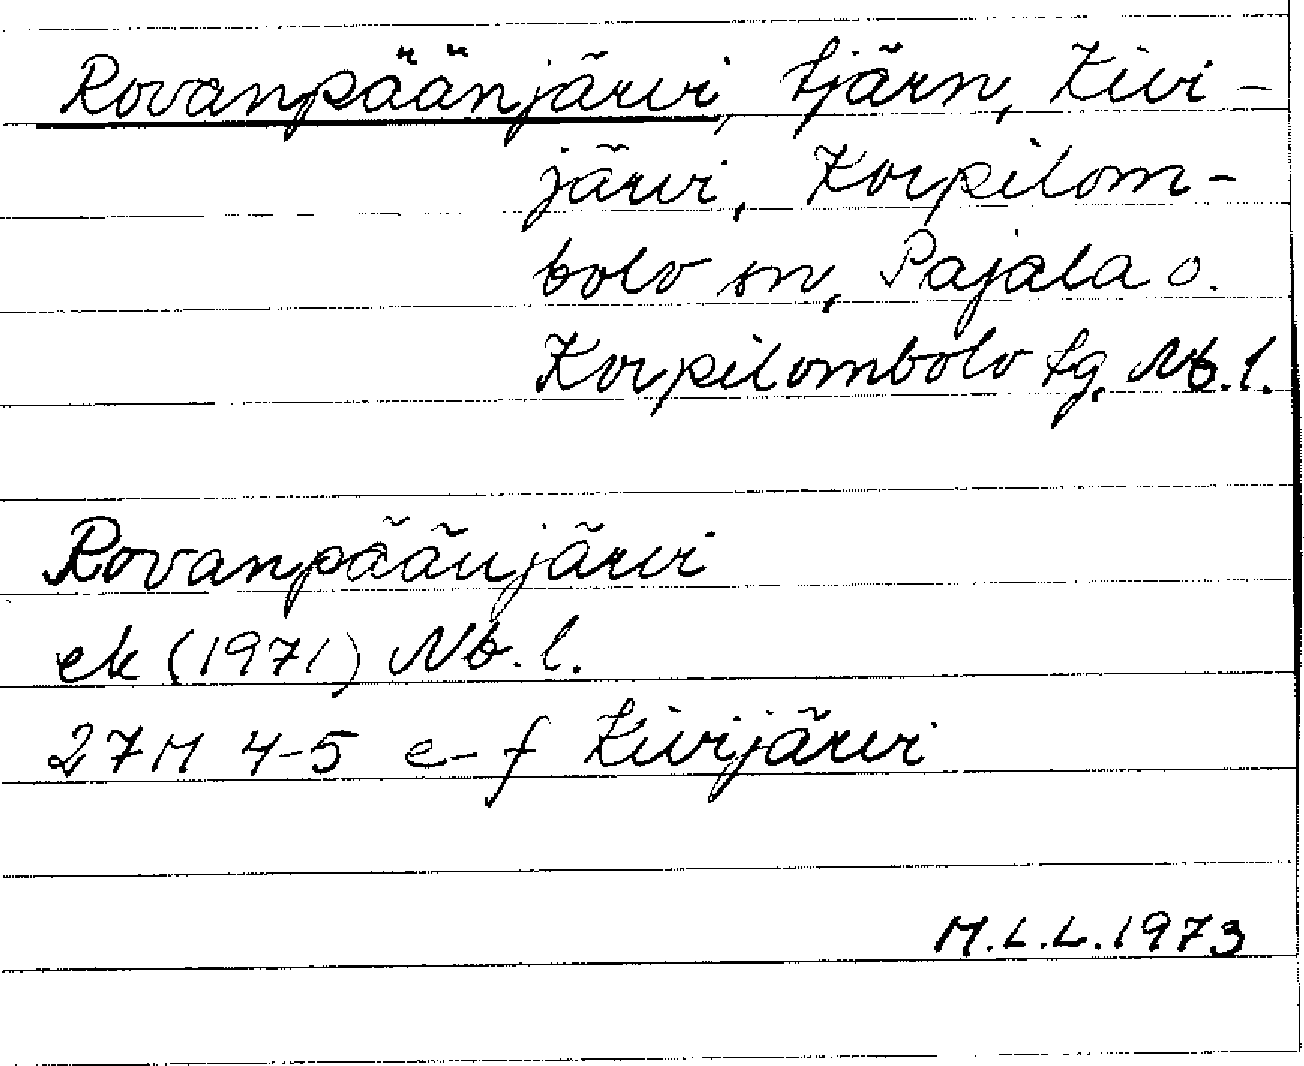 Rovanpäänjärvi, tjärn, Kivi-
järvi, Korpilom-
bolo sn, Pajala o.
Korpilombolo tg. Nb.l.
Rovanpäänjärvi
ek (1971) Nb.l.
27M 4-5 e-f Kivijärvi
M.L.L.1973